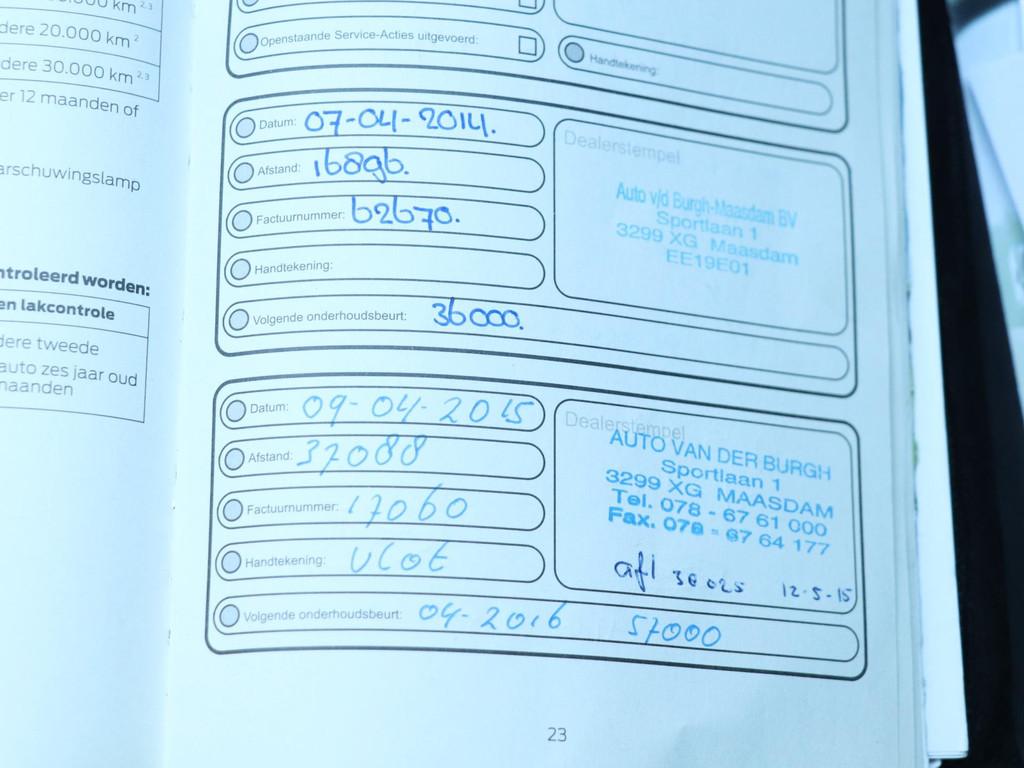 km 2,3
dere 20.000 km 2
dere 30.000 km 2,3
er 12 maanden of
arschuwingslamp
ntroleerd worden:
en lakcontrole
dere tweede
auto zes jaar oud
maanden
Openstaande Service-Acties uitgevoerd:
Handtekening:
Datum: 07-04-2014.
Afstand: 16896.
Factuurnummer: 62670.
Handtekening:
Volgende onderhoudsbeurt: 36000.
Dealerstempel
Auto v/d Burgh-Maasdam BV
Sportlaan 1
3299 XG Maasdam
EE19E01
Datum: 09-04-2015
Afstand: 32088
Factuurnummer: 17060
Handtekening: Vlot
Volgende onderhoudsbeurt: 04-2016 57000
Dealerstempel
AUTO VAN DER BURGH
Sportlaan 1
3299 XG MAASDAM
Tel. 078 - 67 61 000
Fax. 078 - 67 64 177
afl 36025 12-5-15
23